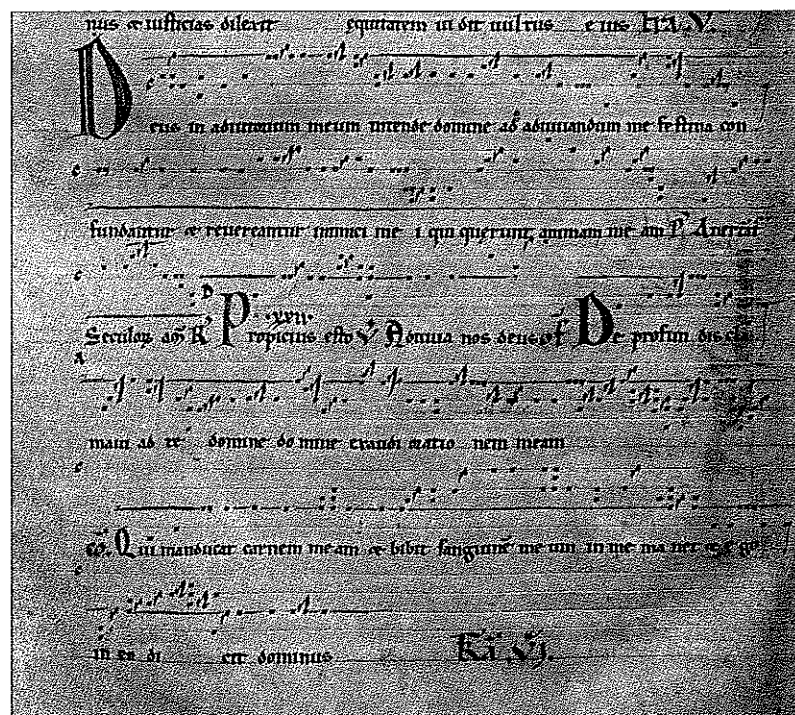 nus & iusticias dilexit equitatem in dit uultus e ius
Deus in adiutorium meum intende domine ad adiuuandum me festina con
fundantur & reuereantur inimici me i qui querunt animam me am
Seculorum Propicius esto Adiuua nos deus De profun dis cla
maui ad te domine do mine exaudi oratio nem meam
Qui manducat carnem meam & bibit sanguinē me um in me ma net & e go
in eo di cit dominus